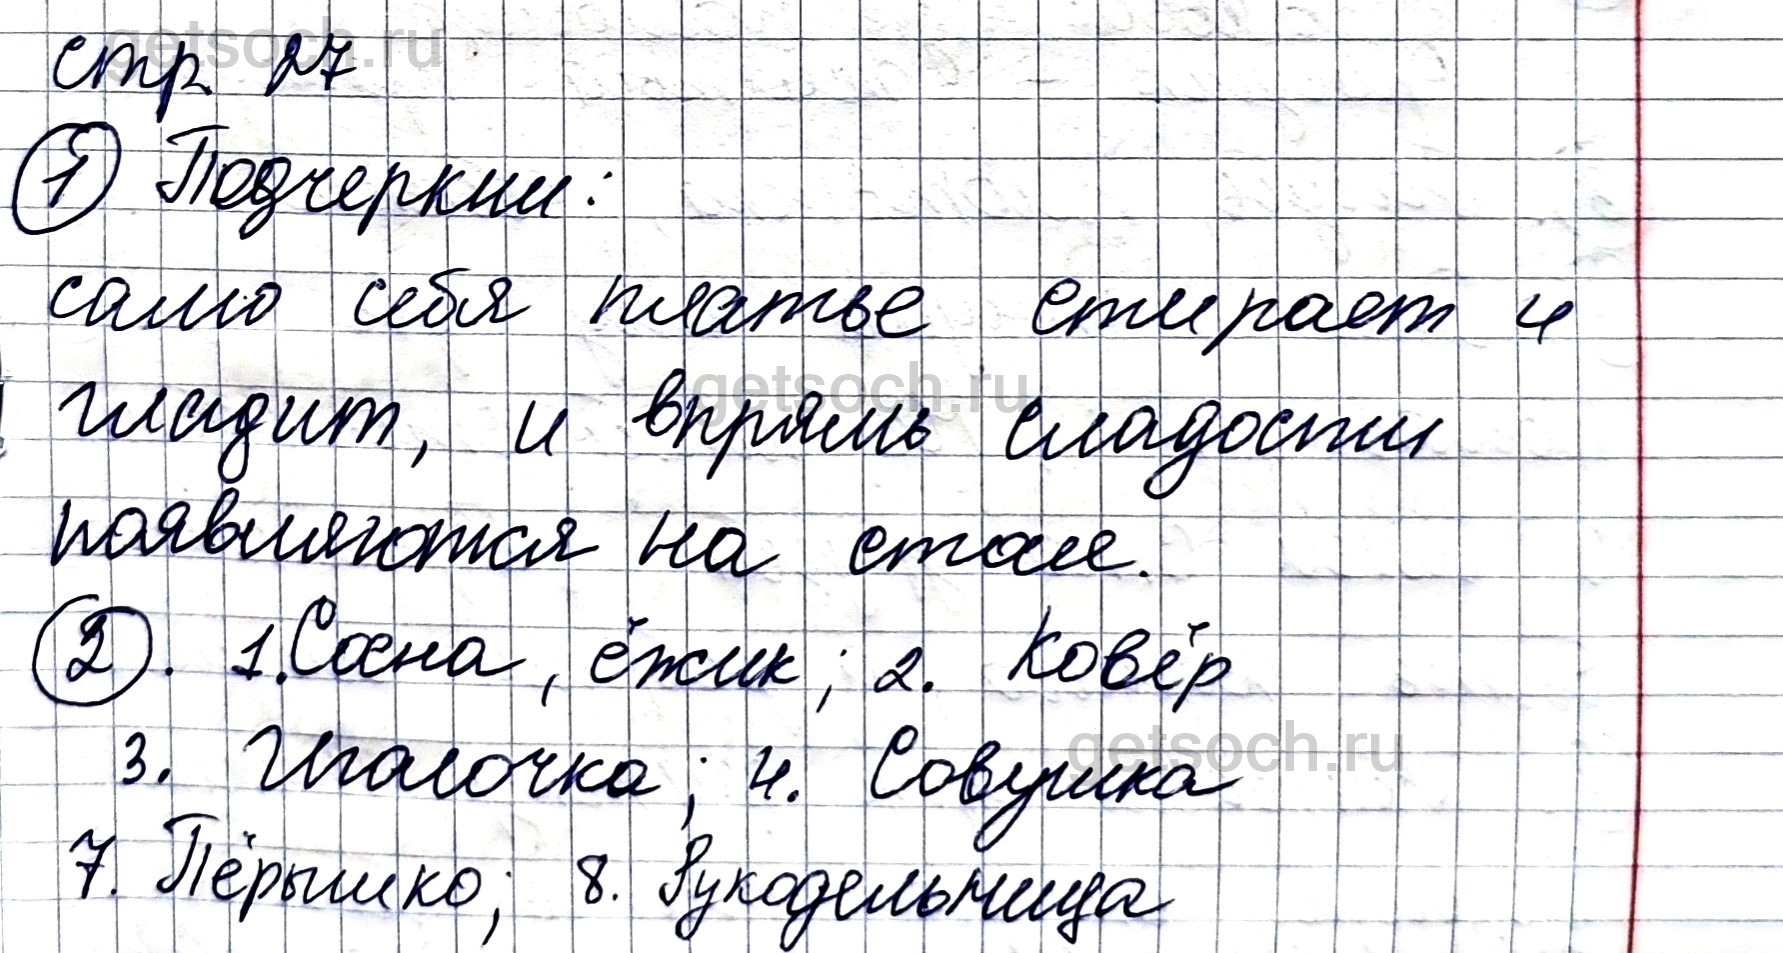 стр. 27
① Подчеркни:
само себя платье стирает и
гладит, и впрямь сладости
появляются на столе.
②. 1. Сосна, ёжик; 2. Ковёр
3. Иголочка; 4. Совушка
7. Пёрышко; 8. Рукодельница
getsoch.ru
getsoch.ru
getsoch.ru